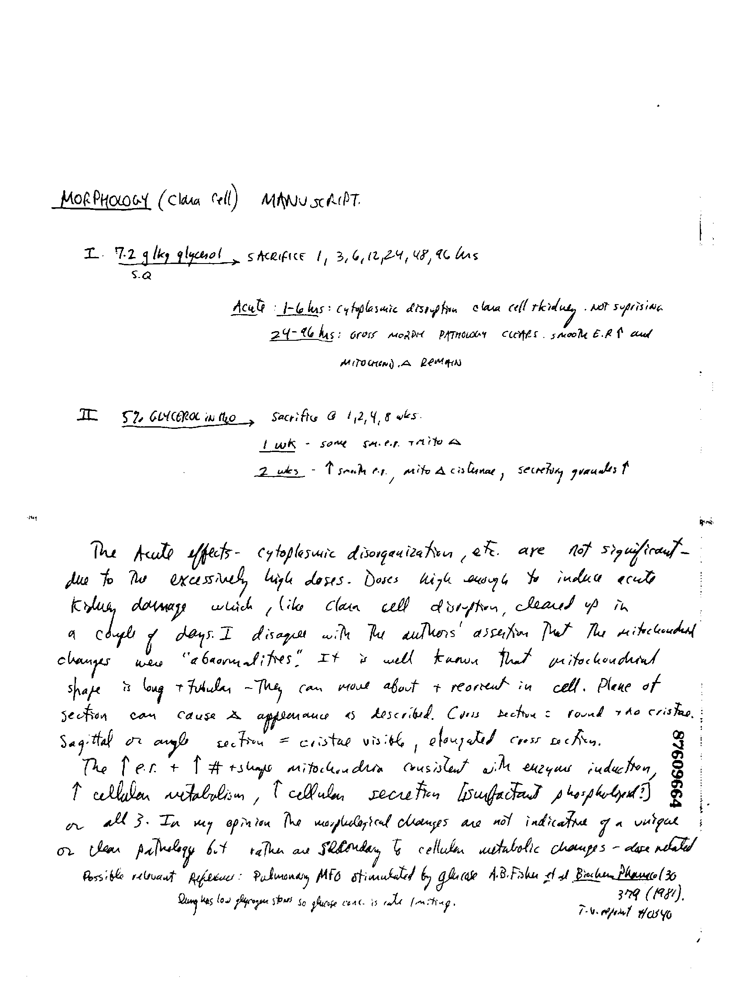 MORPHOLOGY (Clara Cell) MANUSCRIPT.
I. 7.2 g/kg glycerol → SACRIFICE 1, 3, 6, 12, 24, 48, 96 hrs
S.Q
Acute : 1-6 hrs : cytoplasmic disruption clara cell + kidney. NOT suprising
24-96 hrs : GROSS MORPH PATHOLOGY CLEARS. SMOOTH E.R ↑ and
MITOCHOND. Δ REMAIN
II 5% GLYCEROL in H2O → Sacrifice @ 1, 2, 4, 8 wks.
1 wk - some sm. e.r. + mito Δ
2 wks - ↑ smooth e.r., mito Δ cisternae, secretory granules ↑
The Acute effects - cytoplasmic disorganization, etc. are not significant -
due to the excessively high doses. Doses high enough to induce acute
Kidney damage which, like clara cell disruption, cleared up in
a couple of days. I disagree with the authors' assertion that the mitochondrial
changes were "abnormalities". It is well known that mitochondrial
shape is long + tubular - They can move about + reorient in cell. Plane of
section can cause Δ appearance as described. Cross section = round + no cristae.
Sagittal or angle section = cristae visible, elongated cross section.
The ↑ e.r. + ↑ # + shape mitochondria consistent with enzyme induction,
↑ cellular metabolism, ↑ cellular secretion [surfactant phospholipid?]
or all 3. In my opinion the morphological changes are not indicative of a unique
or clear pathology but rather are secondary to cellular metabolic changes - dose related
Possible relevant Reference: Pulmonary MFO stimulated by glucose A.B. Fisher et al Biochem Pharmacol 30
379 (1981).
Lung has low glycogen stores so glucose conc. is rate limiting.
T.V. reprint #
87609664